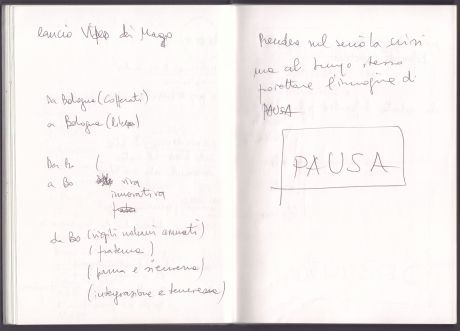 lancio Video di Mago
Da Bologna (Cofferati)
a Bologna (
Da Bo (
a Bo viva
innovativa
da Bo (vigili urbani armati)
(fraterna)
(paura e sicurezza)
(integrazione e tenerezza)
Prendere sul serio la crisi
ma al tempo stesso
proiettare l'immagine di
PAUSA
PAUSA